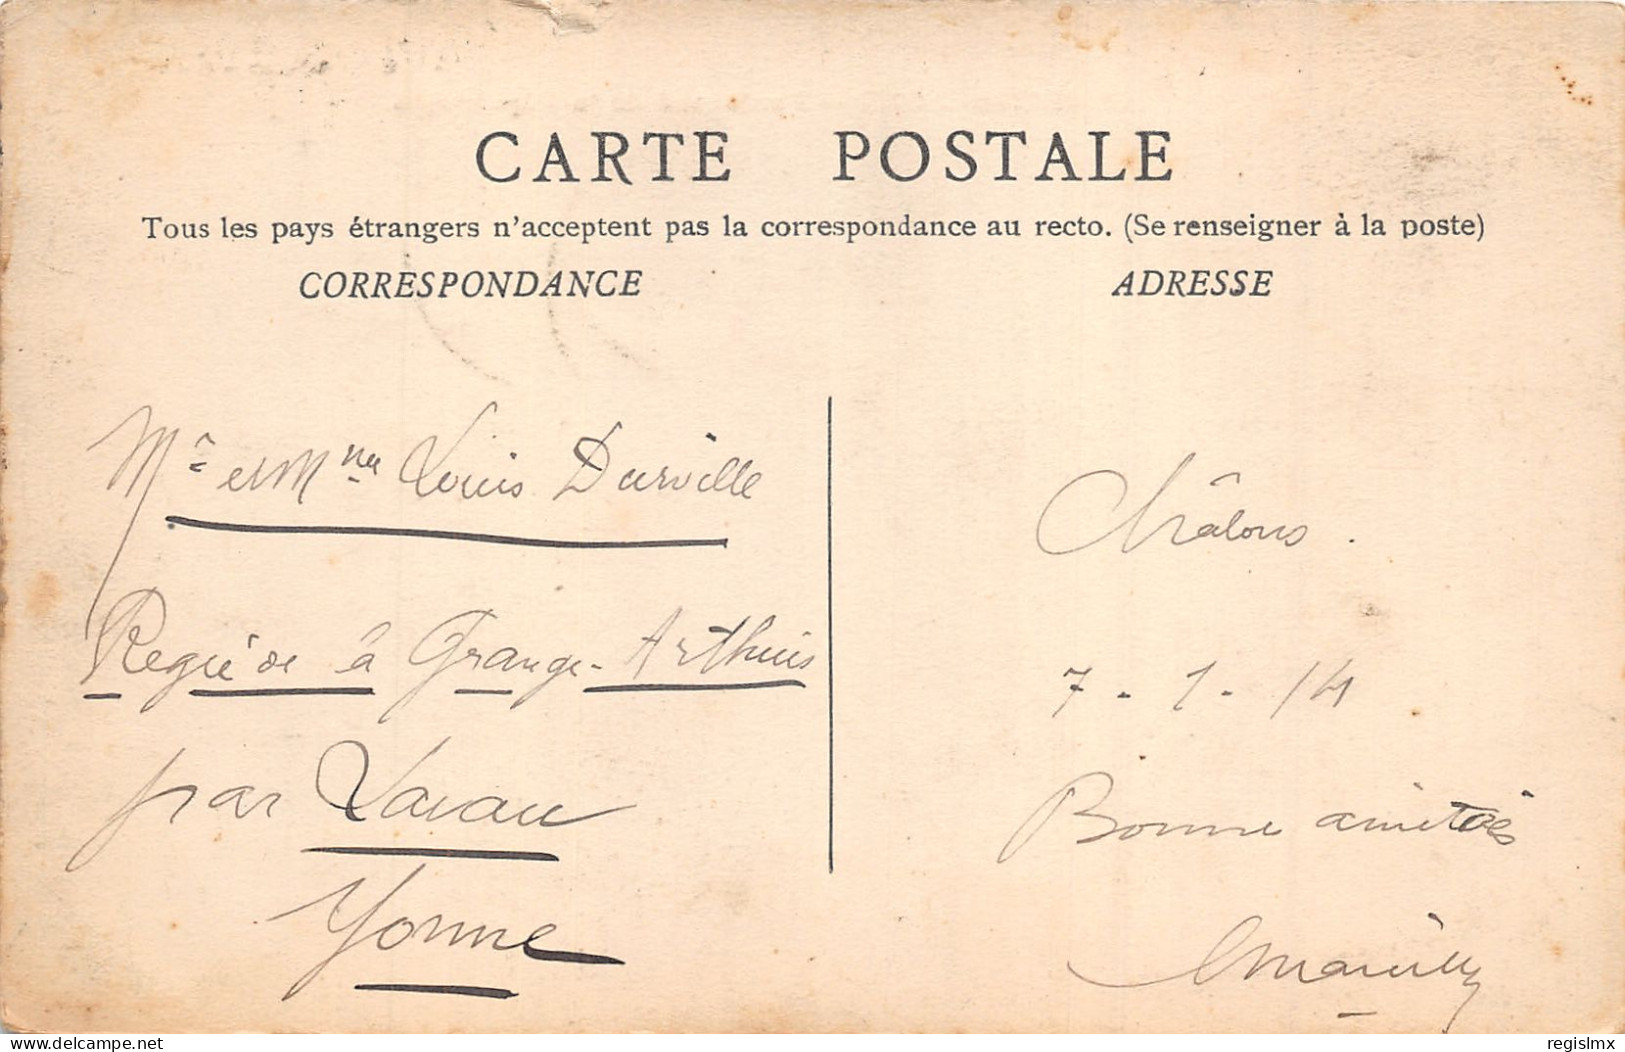 CARTE POSTALE
Tous les pays étrangers n'acceptent pas la correspondance au recto. (Se renseigner à la poste)
CORRESPONDANCE
ADRESSE
Mr et Mme Louis Durville
à Grange-Arthuis
par Lavau
Yonne
Châlons.
7-1-14
Bonne amitiés
delcampe.net
regislmx